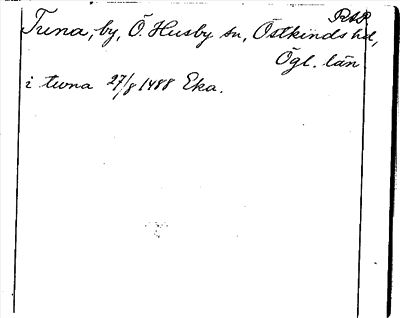 RAP
Tuna, by, Ö. Husby sn, Östkinds hd,
Ögl. län
i twna 27/8 1488 Eka.